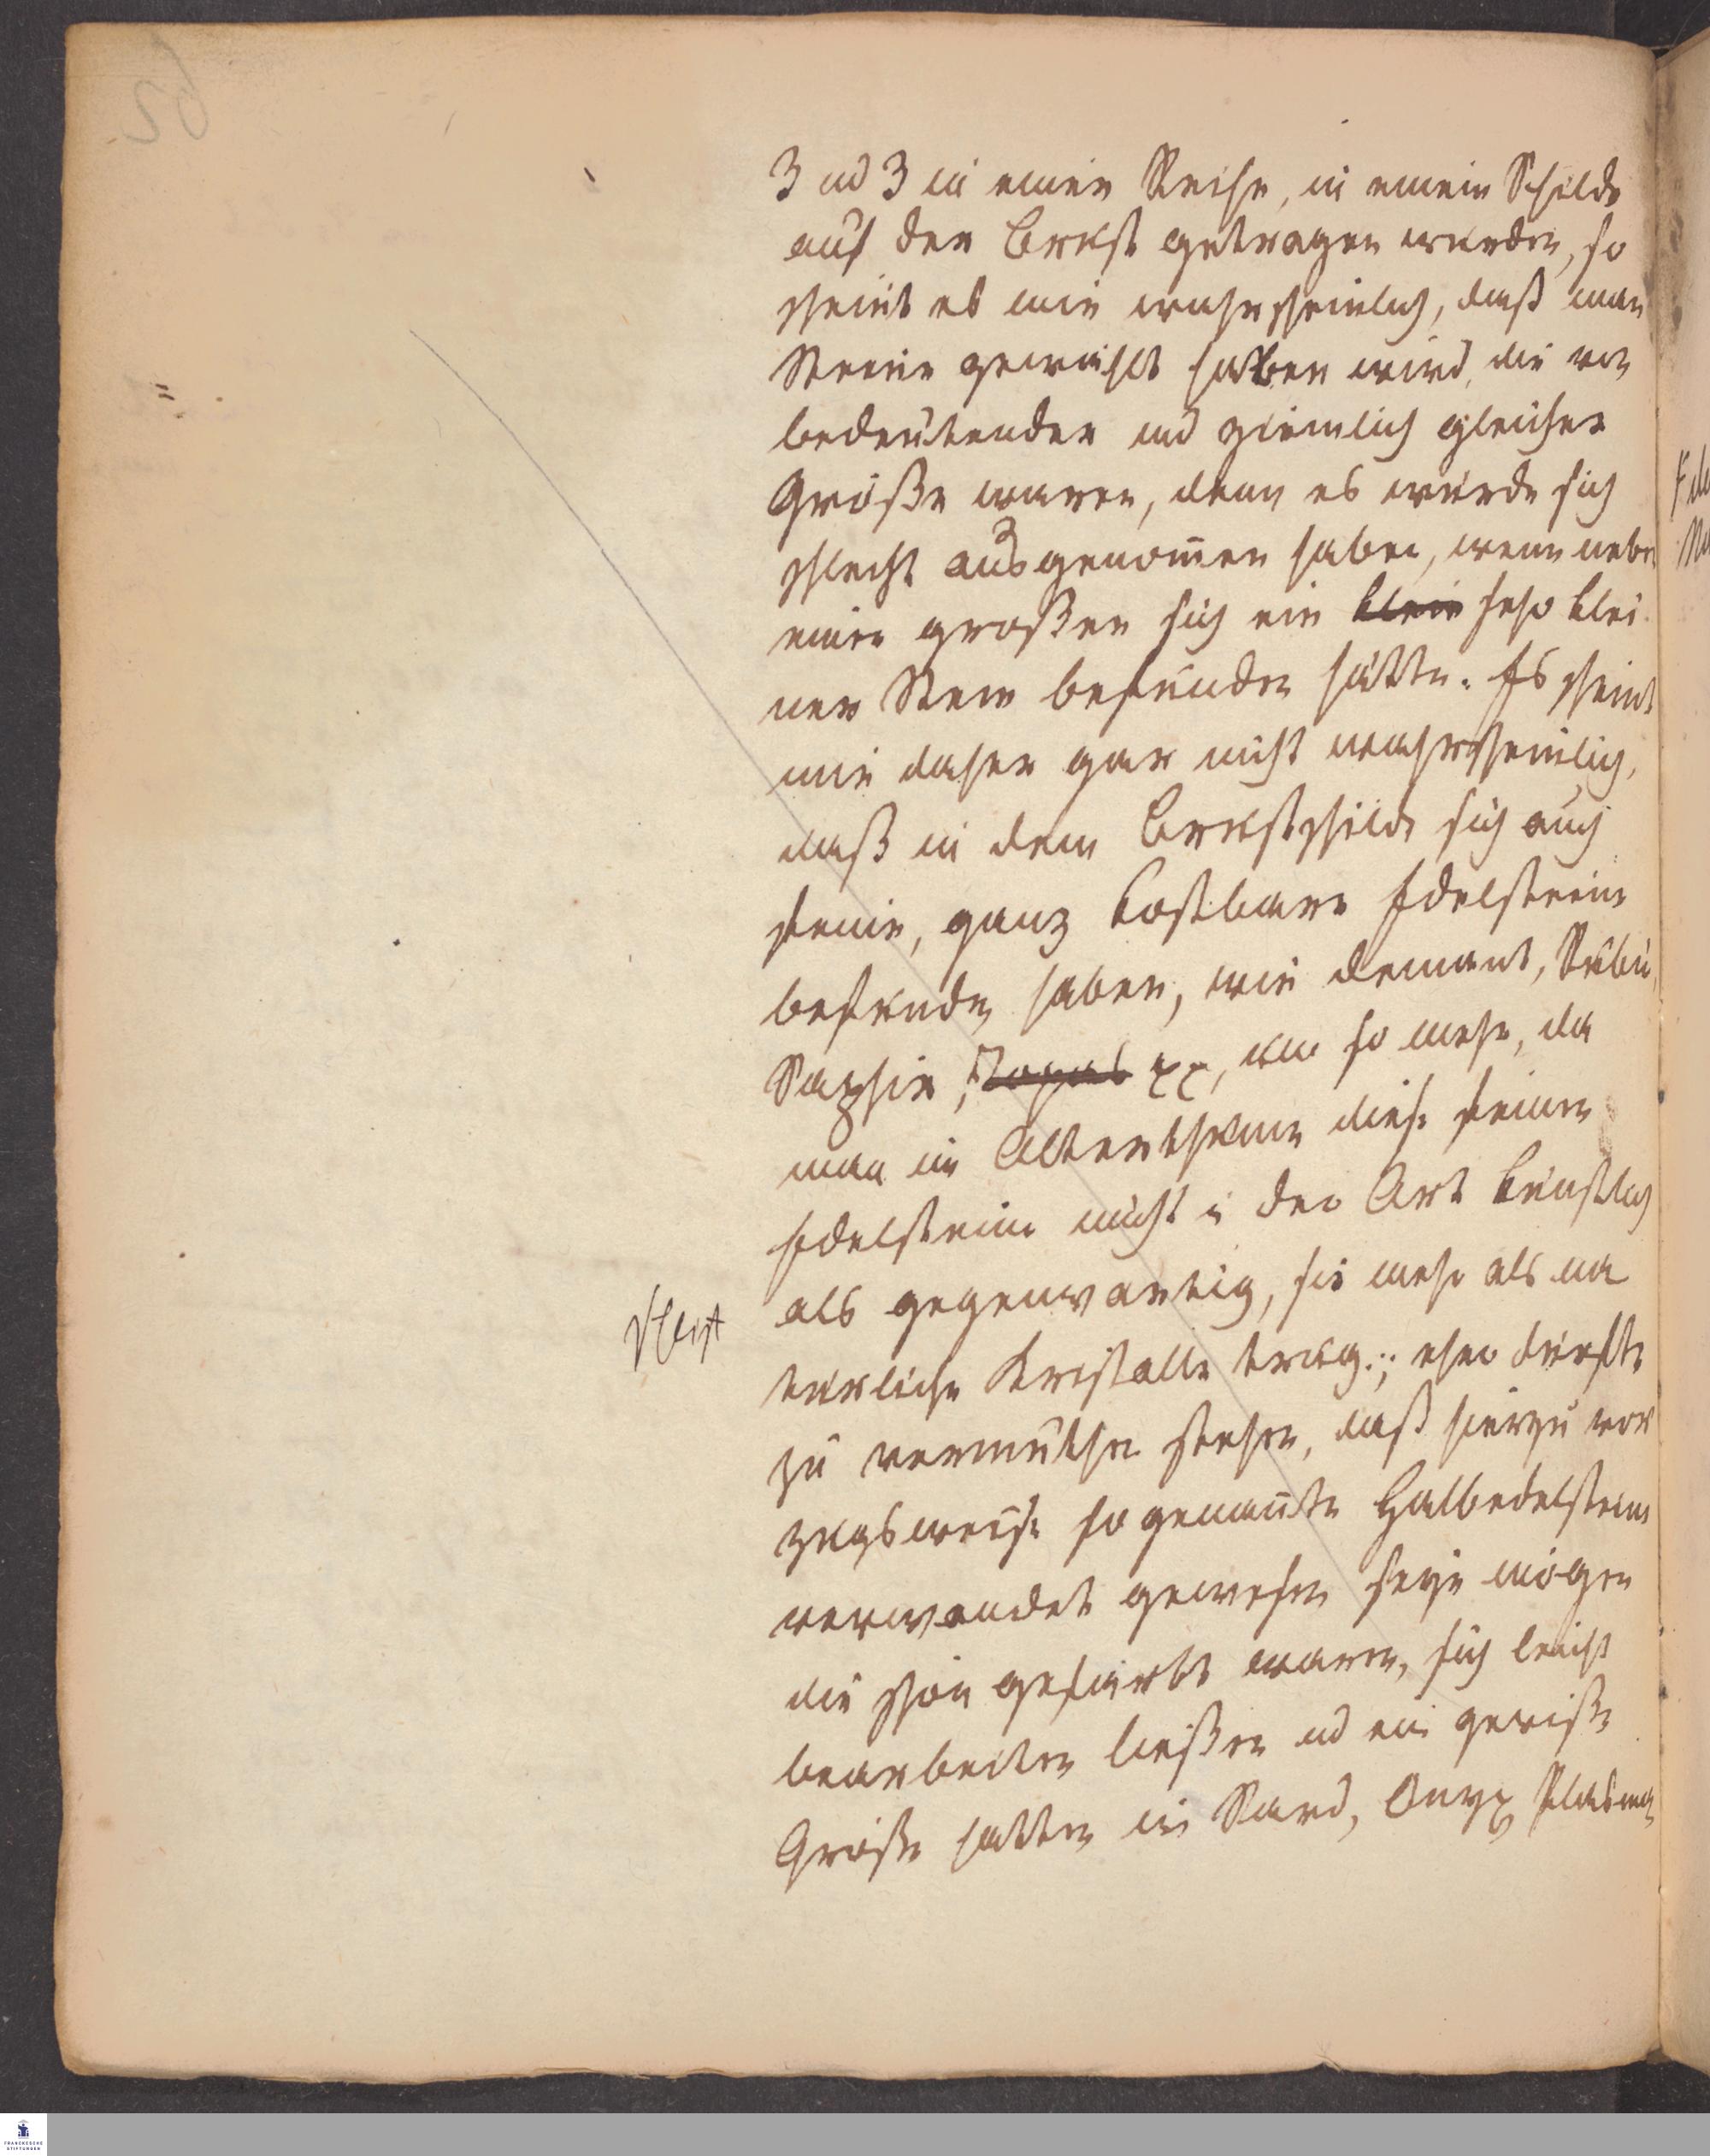 3 und 3 in einer Reihe, in einem Schilde
auf der Brust getragen wurden, so
scheint es mir wahrscheinlich, daß man
Steine gewählt haben wird, die von
bedeutender und ziemlich gleicher
Größe waren, denn es würde sich
schlecht ausgenom̄en haben, wenn neben
einen großen sich ein klein sehr klei
ner Stein befunden hätte. Es scheint
mir daher gar nicht wahrscheinlich,
daß in dem Brustschilde sich auch
feine, ganz kostbare Edelsteine
befunden haben, wie Demant, Rubin,
Saphir, Topas xx, um so mehr, da
man im Alterthume diese feinen
Edelsteine nicht in der Art künstlich
als gegenwartig, sie mehr als na
türliche Kristalle trug.; eher dürfte
zu vermuthen stehen, daß hierzu vor
zugsweise sogenan̄te Halbedelsteine
verwendet gewesen seyn mögen
die schön gefärbt waren, sich leicht
bearbeiten ließen und eine gewiße
Größe hatten wie Sard, Onyx Plasma